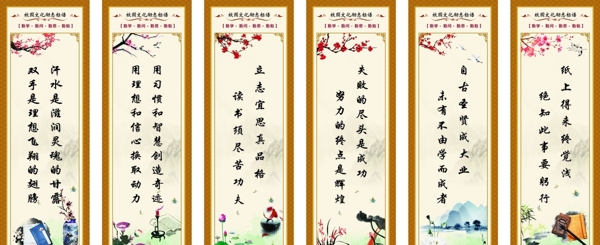 校园文化励志标语
【勤学·勤问·勤思·勤勉】
汗水是滋润灵魂的甘露
双手是理想飞翔的翅膀
校园文化励志标语
【勤学·勤问·勤思·勤勉】
用习惯和智慧创造奇迹
用理想和信心换取动力
校园文化励志标语
【勤学·勤问·勤思·勤勉】
立志宜思真品格
读书须尽苦功夫
校园文化励志标语
【勤学·勤问·勤思·勤勉】
失败的尽头是成功
努力的终点是辉煌
校园文化励志标语
【勤学·勤问·勤思·勤勉】
自古圣贤成大业
未有不由学而成者
校园文化励志标语
【勤学·勤问·勤思·勤勉】
纸上得来终觉浅
绝知此事要躬行